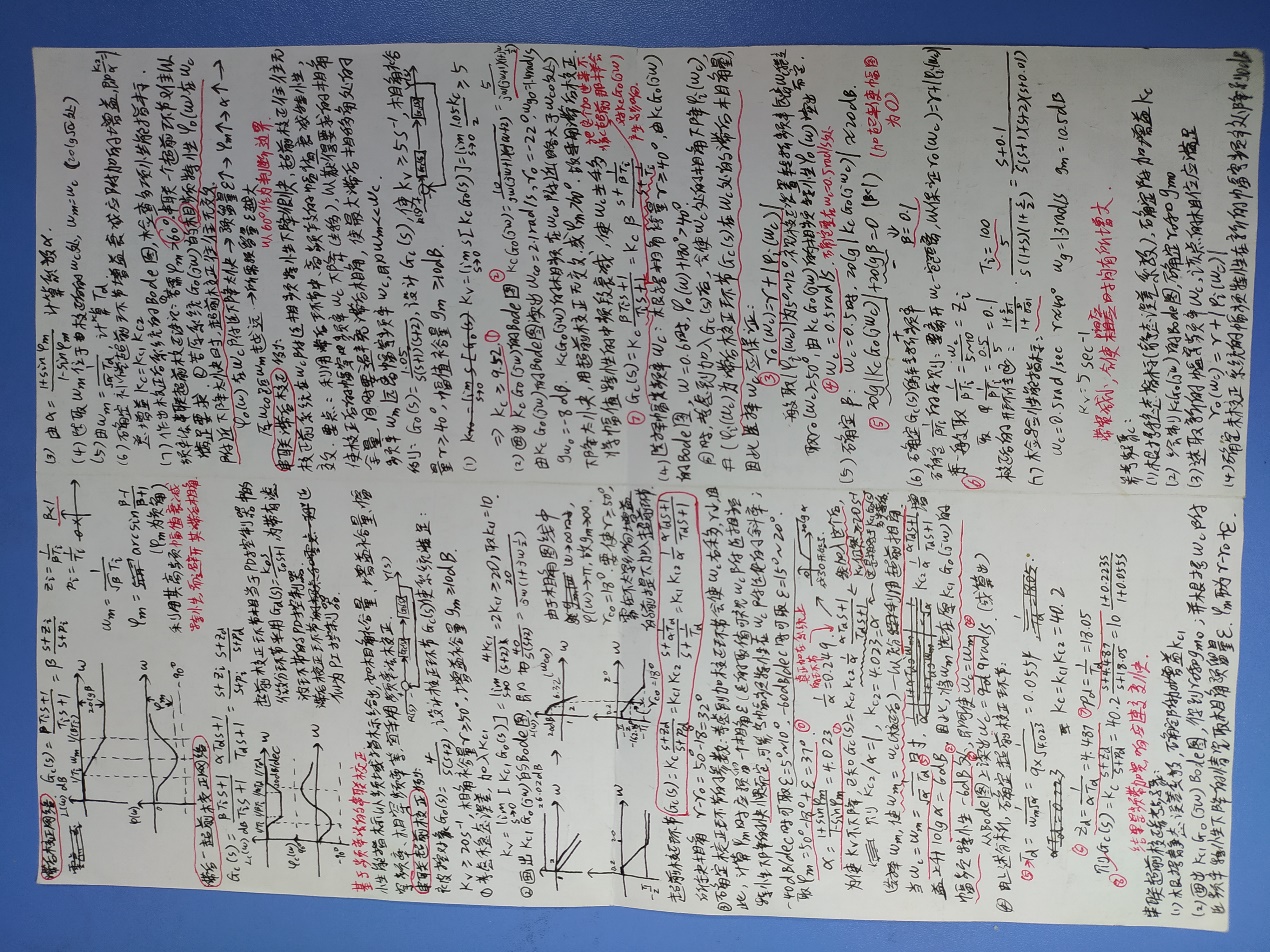 滞后校正网络 Gc(s) = (βTis+1)/(Tis+1) = β (s+zi)/(s+pi) zi = 1/(βTi) β<1
pi = 1/Ti
L(ω) dB
1/Ti ωm 1/(βTi) ω
20lgβ
ωm = 1/(√β Ti)
φm = arcsin (β-1)/(β+1)
(φm为负角)
φ(ω)
0 φm ω
-90°
利用其高频幅值衰减
特性,而避开其滞后相角
滞后-超前校正网络
Gc(s) = (βTis+1)/(Tis+1) (αTds+1)/(Tds+1) = (s+zi)/(s+pi) (s+zd)/(s+pd)
L(ω) dB
20dB/dec
φc(ω)
-90°
超前校正环节相当于PD控制器中的
微分环节采用Gd(s)=,为带有滤
波环节的PD控制器
滞后校正环节近
似为PI控制器
基于频率法的串联校正
性能指标以频域指标给出,如相角裕量、增益裕量、幅
穿频率、相穿频率等,宜采用频率法校正
串联超前校正例:
R(s) Gc(s) G0(s) Y(s)
被控对象G0(s) = 4/(s(s+2)),设计校正环节Gc(s)使系统满足:
Kv ≥ 20s⁻¹,相角裕量γ≥50°,增益裕量gm≥10dB.
①考虑稳态误差,加入Kc1
Kv = lim s→0 s[Kc1G0(s)] = lim s→0 4Kc1/(s+2) = 2Kc1 ≥ 20,取Kc1=10.
②画出Kc1G0(jω)的Bode图,即为 40/(s(s+2)) = 20/(jω(1+jω 1/2))
26.02dB
L(ω)
20dB
6.32 (ωc0)
由于相角图线中
ω→∞时,
φ(ω)→-π,故gm→∞.
γc0=18°.要使γ≥50°,
需在不太影响增益
的前提下加入超前环节
0.2 2 20
-π/2
-162.5°
-π
γc0=18°
超前校正环节 Gc(s) = Kc (s+zd)/(s+pd) = Kc1Kc2 (s+1/(αTd))/(s+1/Td) = Kc1Kc2 1/α (αTds+1)/(Tds+1)
所缺相角 γ-γ0=50°-18°=32°
③确定校正环节的参数:考虑到加校正环节会使ωc右移,γ↓,因
此,计算φm时应预留一个相角ε(ε的取值可视ωc附近相频
特性下降的快慢而定,可考虑幅频特性在ωc附近处的斜率;
-40dB/dec时可取ε=5°~10°,-60dB/dec时可取ε=15°~20°.
取φm=50°-18°+ε=37°
α = (1+sinφm)/(1-sinφm) = 4.023 1/α=0.249.
真正加在系统上
的环节
20lgα
为使Kv不下降,已知Gc(s) = Kc1Kc2 1/α (αTds+1)/(Tds+1)
则Kc2/α=1,Kc2=4.023=α
需加入这个后,
Kv仍然≥20s⁻¹
选择ωm,使ωm=ωc(校正后)—以充分利用超前相角
当ωc=ωm=1/(√α Td)时, Kc2 1/α (αTds+1)/(Tds+1) 增
益上升10lgα=6dB 因此,将ωm选在原Kc1G0(jω)的
幅频特性-6dB处,即可使ωc=ωm
从Bode图上读出ωc=9rad/s (或算出)
④由上述分析,确定超前校正环节:
⑤Td = 1/(ωm√α) = 1/(9×√4.023) = 0.0554
Kc=Kc1Kc2=40.2
⑥ zd = 1/(αTd) = 4.487 ⑦ pd = 1/Td = 18.05
⑧ 则Gc(s) = Kc (s+zd)/(s+pd) = 40.2 (s+4.487)/(s+18.05) = 10 (1+0.223s)/(1+0.055s)
结果是频带加宽,响应速度变快.
串联超前校正参考步骤:
(1)根据静态误差系数,确定附加增益Kc1
(2)画出Kc1G0(jω)Bode图,得到γ0和gm0;并根据ωc附
近频率特性下降的情况取相角预留量ε.φm取为γ-γ0+ε.
(3) 由α = (1+sinφm)/(1-sinφm) 计算系数α.
(4)选取ωm位于校正后的ωc处,ωm=ωc (20lg√α处)
(5)由ωm = 1/(√α Td) 计算Td
(6)确定补偿超前环节增益衰减应附加的增益,即Kc2/α=1
总增益Kc=Kc1Kc2
(7)作出校正后系统的Bode图,检查各项性能指标.
频率法串联超前校正讨论:①若需φm>60°,串联一个超前环节难以
满足要求.②若原系统G0(jω)的相频特性φ0(ω)在ωc
附近下降太快时,超前校正往往无效.
φ0(ω)在ωc附近下降太快→预留量ε↑→φm↑→α↑→
原ωc0与ωm越远→所需预留量ε越大
以60°作为判断边界.
串联滞后校正例:
校正前系统在ωc附近相频特性下降很快,超前校正往往无
效.要点:利用滞后环节中、高频段的幅值衰减特性,
使校正后的幅穿频率ωc下降(左移),以获得要求的相角
余量.同时要避免滞后相角,使最大滞后相移角处的
频率ωm远离幅穿频率ωc,即ωm<<ωc
例:G0(s) = 1.05/(s(s+1)(s+2)),设计Gc(s),使Kv≥5s⁻¹,相角裕
量γ≥40°,幅值裕量gm≥10dB.
(1) Kv=lim s→0 s[KcG0(s)]=lim s→0 1.05Kc/2 ≥ 5
⇒ Kc≥9.52 ①
(2)画出KcG0(jω)的Bode图 ② KcG0(jω) = 10/(jω(jω+1)(jω+2)) = 5/(jω(jω+1)(1+jω/2))
由KcG0(jω)的Bode图读出ωc0=2.1rad/s,γ0=-22°,ωg0=1.4rad/s
gm0=-8dB. KcG0(jω)的相频在ωc0附近(略大于ωc0处)
下降太快,用超前校正无效,或φm>60°.故采用滞后校正.
将幅值特性的中频段衰减,使ωc左移
⑦ Gc(s) = Kc (βTis+1)/(Tis+1) = Kc β (s+1/(βTi))/(s+1/Ti)
(4)选择幅穿频率ωc:根据相角裕量γ≥40°,由KcG0(jω)
的Bode图,ω=0.6时,φ0(ω)+180°>40°
同时,考虑到加入Gc(s)后,会使ωc处的相角下降φi(ωc),
(φi(ωc)为滞后校正环节Gc(s)在ωc处的滞后相角量),
因此选择ωc应保证:
③ γ0(ωc)=γ+|φi(ωc)|
一般取|φi(ωc)|为5°~12°,视校正装置转折频率远离ωc程度
而定.
取γ0(ωc)=50°,由KcG0(jω)的相频特性φ0(ω)读出
④ ωc=0.5rad/s. 确定要在ωc=0.5rad/s处
(5)确定β:ωc=0.5时,20lg|KcG0(jω)|≈20dB.
⑤ 20lg|KcG0(jω)|+20lgβ=0 (β<1) (加起来使幅图
为0)
β=0.1
(6)确定Gc(s)的转折频率
确定1/(βTi)的原则:要离开ωc一定距离,以保证γ0(ωc)=γ+|φi(ωc)|
⑥ 一般取 1/(βTi) = ωc/(5~10) = zi
取 1/(βTi) = 0.5/5 = 0.1 Ti=100
校正后的开环传函: (1+s/0.1)/(1+s/0.01) · 5/(s(1+s)(1+s/2)) = (s+0.1)/(s(s+1)(s+2)(s+0.01))
(7)检验性能指标:
ωc=0.5rad/sec γ≈40° ωg=1.3rad/s gm=10.5dB
Kv=5sec⁻¹
带宽减小,会使时间有所增大.
参考步骤:
(1)根据稳态指标(静态误差系数),确定附加增益Kc
(2)绘制KcG0(jω)的Bode图,确定γ0和gm0
(3)选取新的幅穿频率ωc,该点的相位应满足
γ0(ωc)=γ+|φi(ωc)|
(4)确定未校正系统的幅频特性在新的幅穿频率处下降到0dB